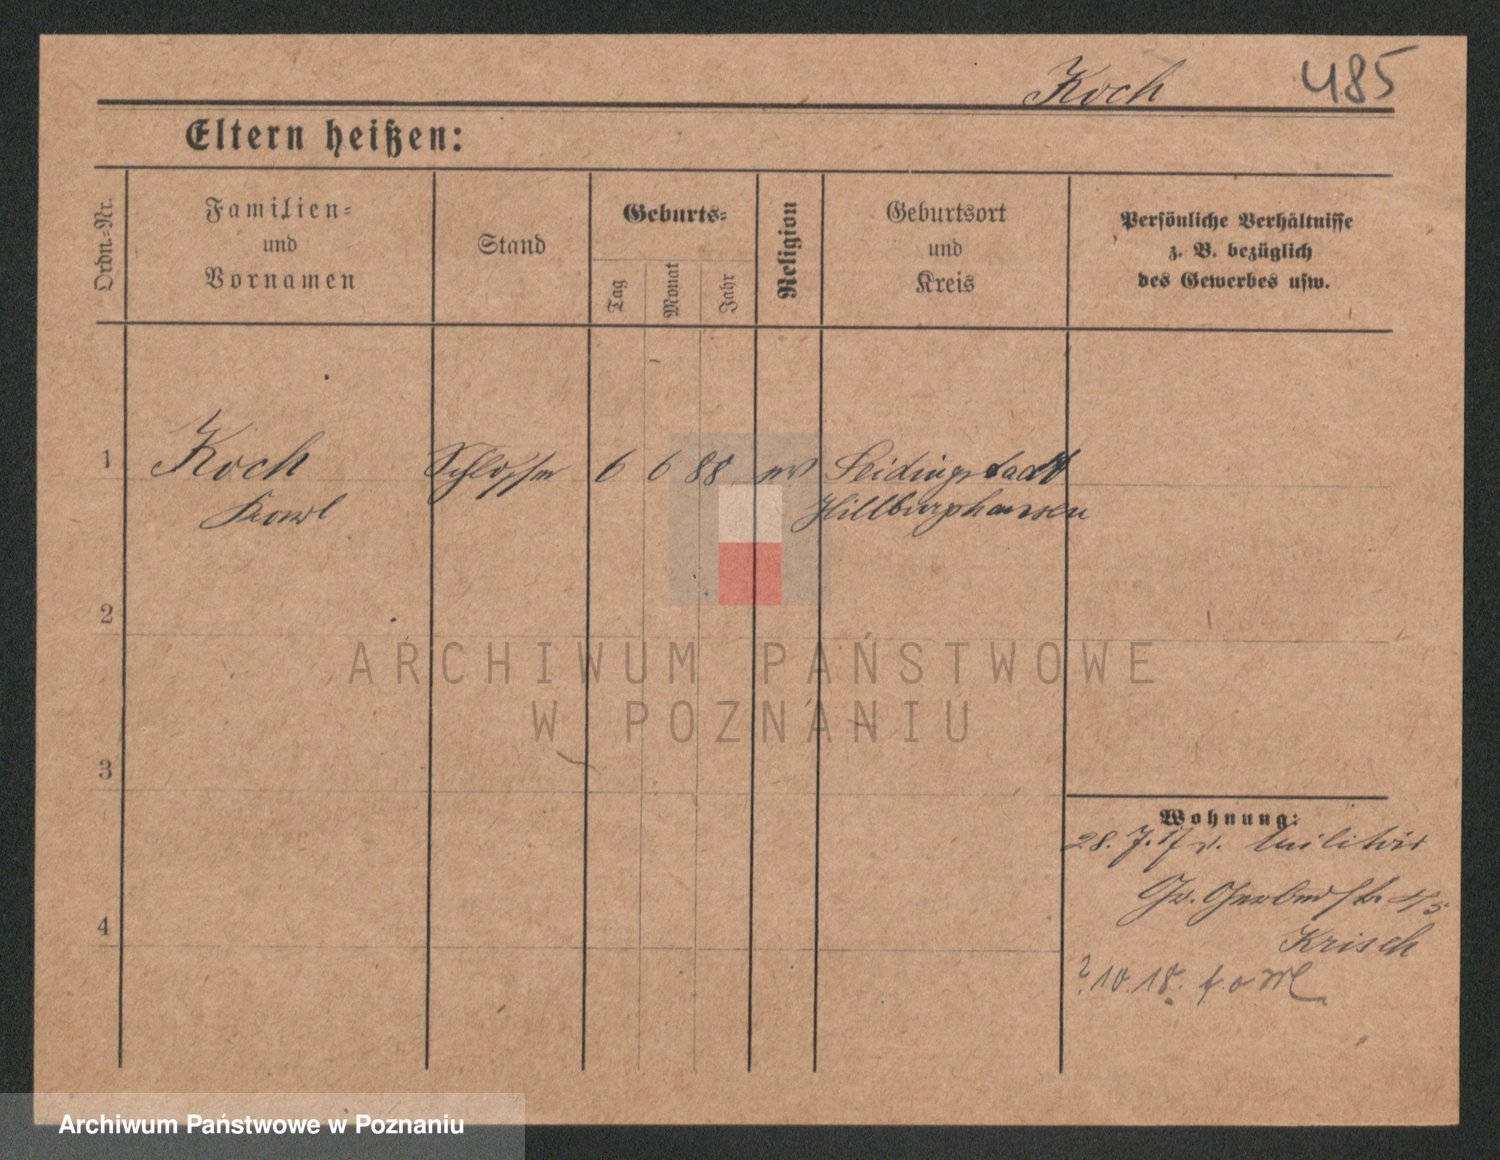 Koch 485
Eltern heißen:
Ordn.=Nr.
Familien=
und
Vornamen
Stand
Geburts=
Tag
Monat
Jahr
Religion
Geburtsort
und
Kreis
Persönliche Verhältnisse
z. B. bezüglich
des Gewerbes usw.
1 Koch Schlosser 6 6 88 ev Seidingstadt
Karl Hildburghausen
2
3
4
Wohnung:
28. 7. 17 v. Militär
Gr. Gerberstr.
Krisch
10. 18.
ARCHIWUM PAŃSTWOWE
W POZNANIU
Archiwum Państwowe w Poznaniu